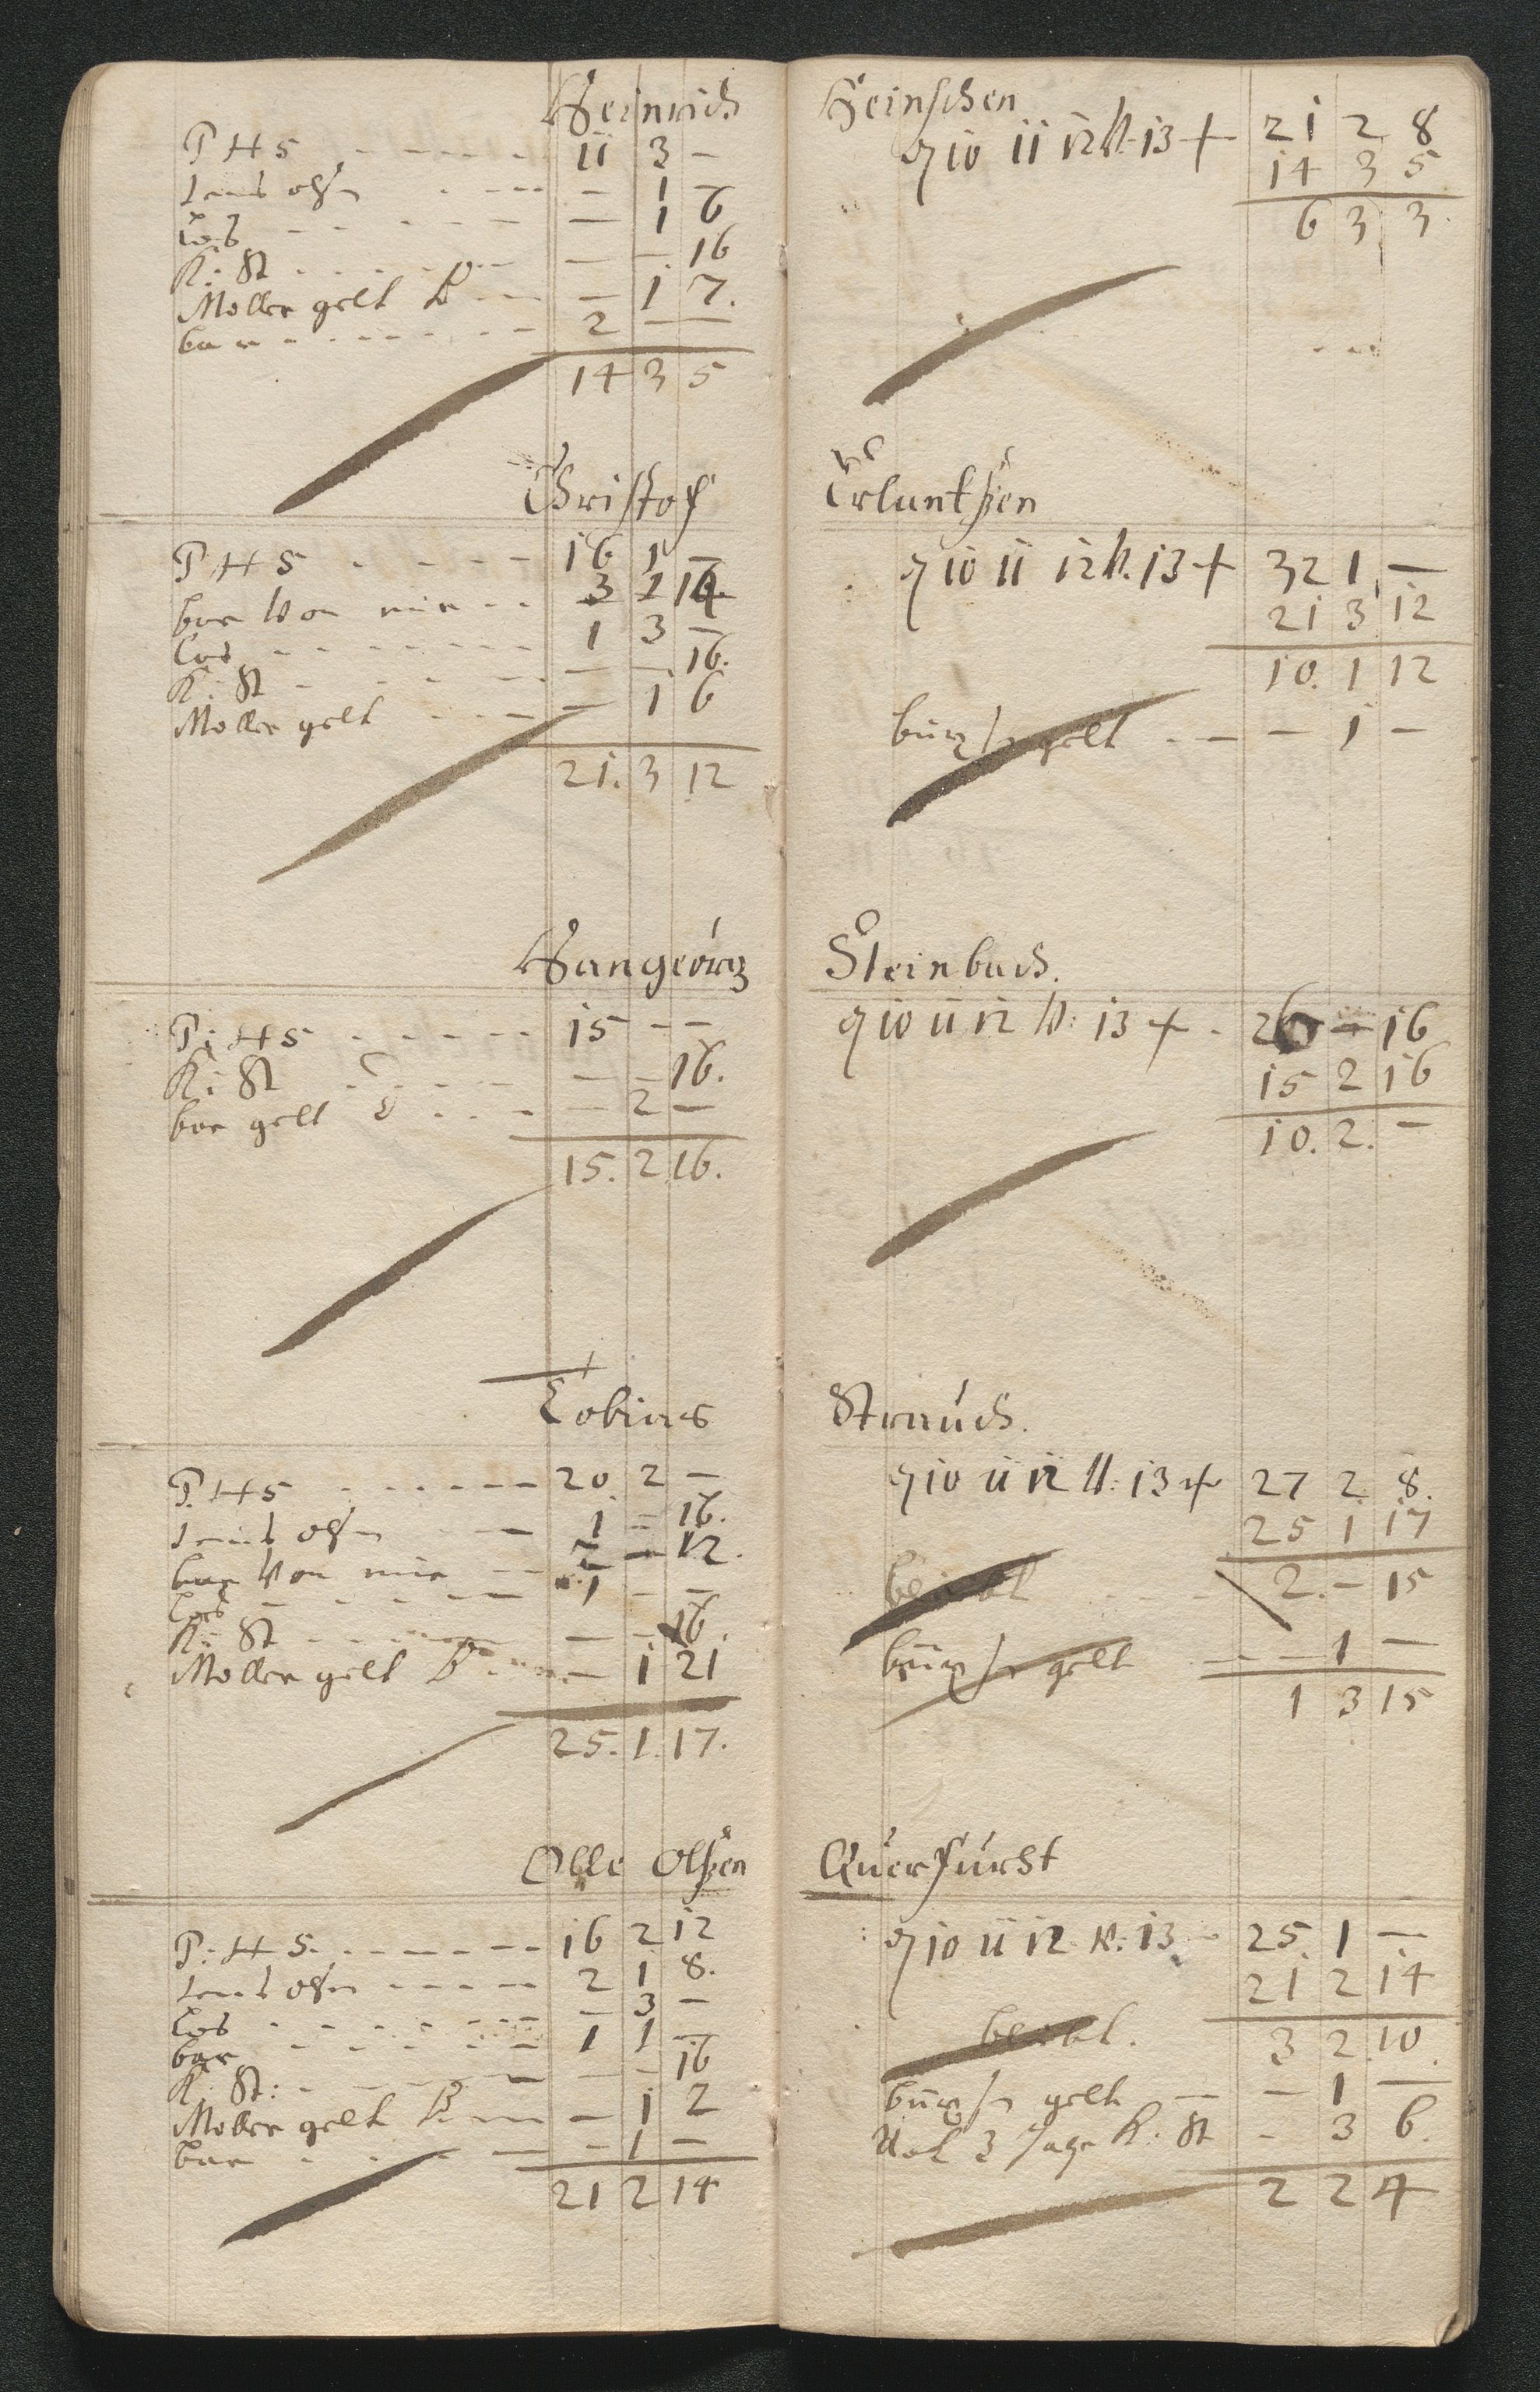 Heinrich
P H S 11 3 –
– 1 –
Cos – 1 6
K: St – – 16
Moller gelt – 1 7.
bar 2 – –
14 3 5
Christof
P H S 16 1 –
bar Von mir 3 1 14
Cos 1 3 –
K: St – – 16.
Moller gelt – 1 6
21. 3 12
Hangeörg
P: H S 15 – –
K: St – – 16.
bar gelt – 2 –
15. 2 16.
Tobias
P. H S 20 2 –
1 – 16.
bar Von mir 2 – 12.
Cos 1 – –
K: St – – 16.
Moller gelt – 1 21
25. 1. 17.
Olle Olßen
P. H S. 16 2 12
2 1 8.
Cos – 3 –
bar 1 1 –
K: St: – – 16
Moller gelt – 1 2
bar – 1 –
21 2 14
Heinschen
9 10 11 12 V. 13 + 21 2 8
14 3 5
6 3 3.
Erluntßen
9 10 11 12 V. 13 + 32 1 –
21 3 12
10. 1 12
gelt – 1 –
Steinbach.
9 10 11 12 V: 13 + 26 – 16
15 2 16
10. 2. –
Strauch.
9 10 11 12 V: 13 + 27 2 8.
25 1 17
2. – 15
gelt – 1 –
1 3 15
Querfurst
9 10 11 12 V: 13 25. 1 –
21 2 14
3 2 10.
gelt – 1 –
3 K: St – 3 6.
2 2 4